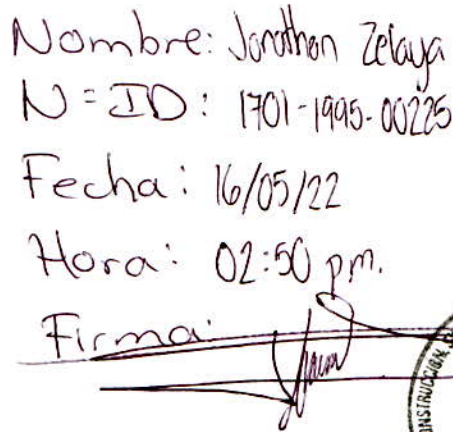 Nombre: Jonathan Zelaya
N= ID: 1701-1995-00225
Fecha: 16/05/22
Hora: 02:50 pm.
Firma: